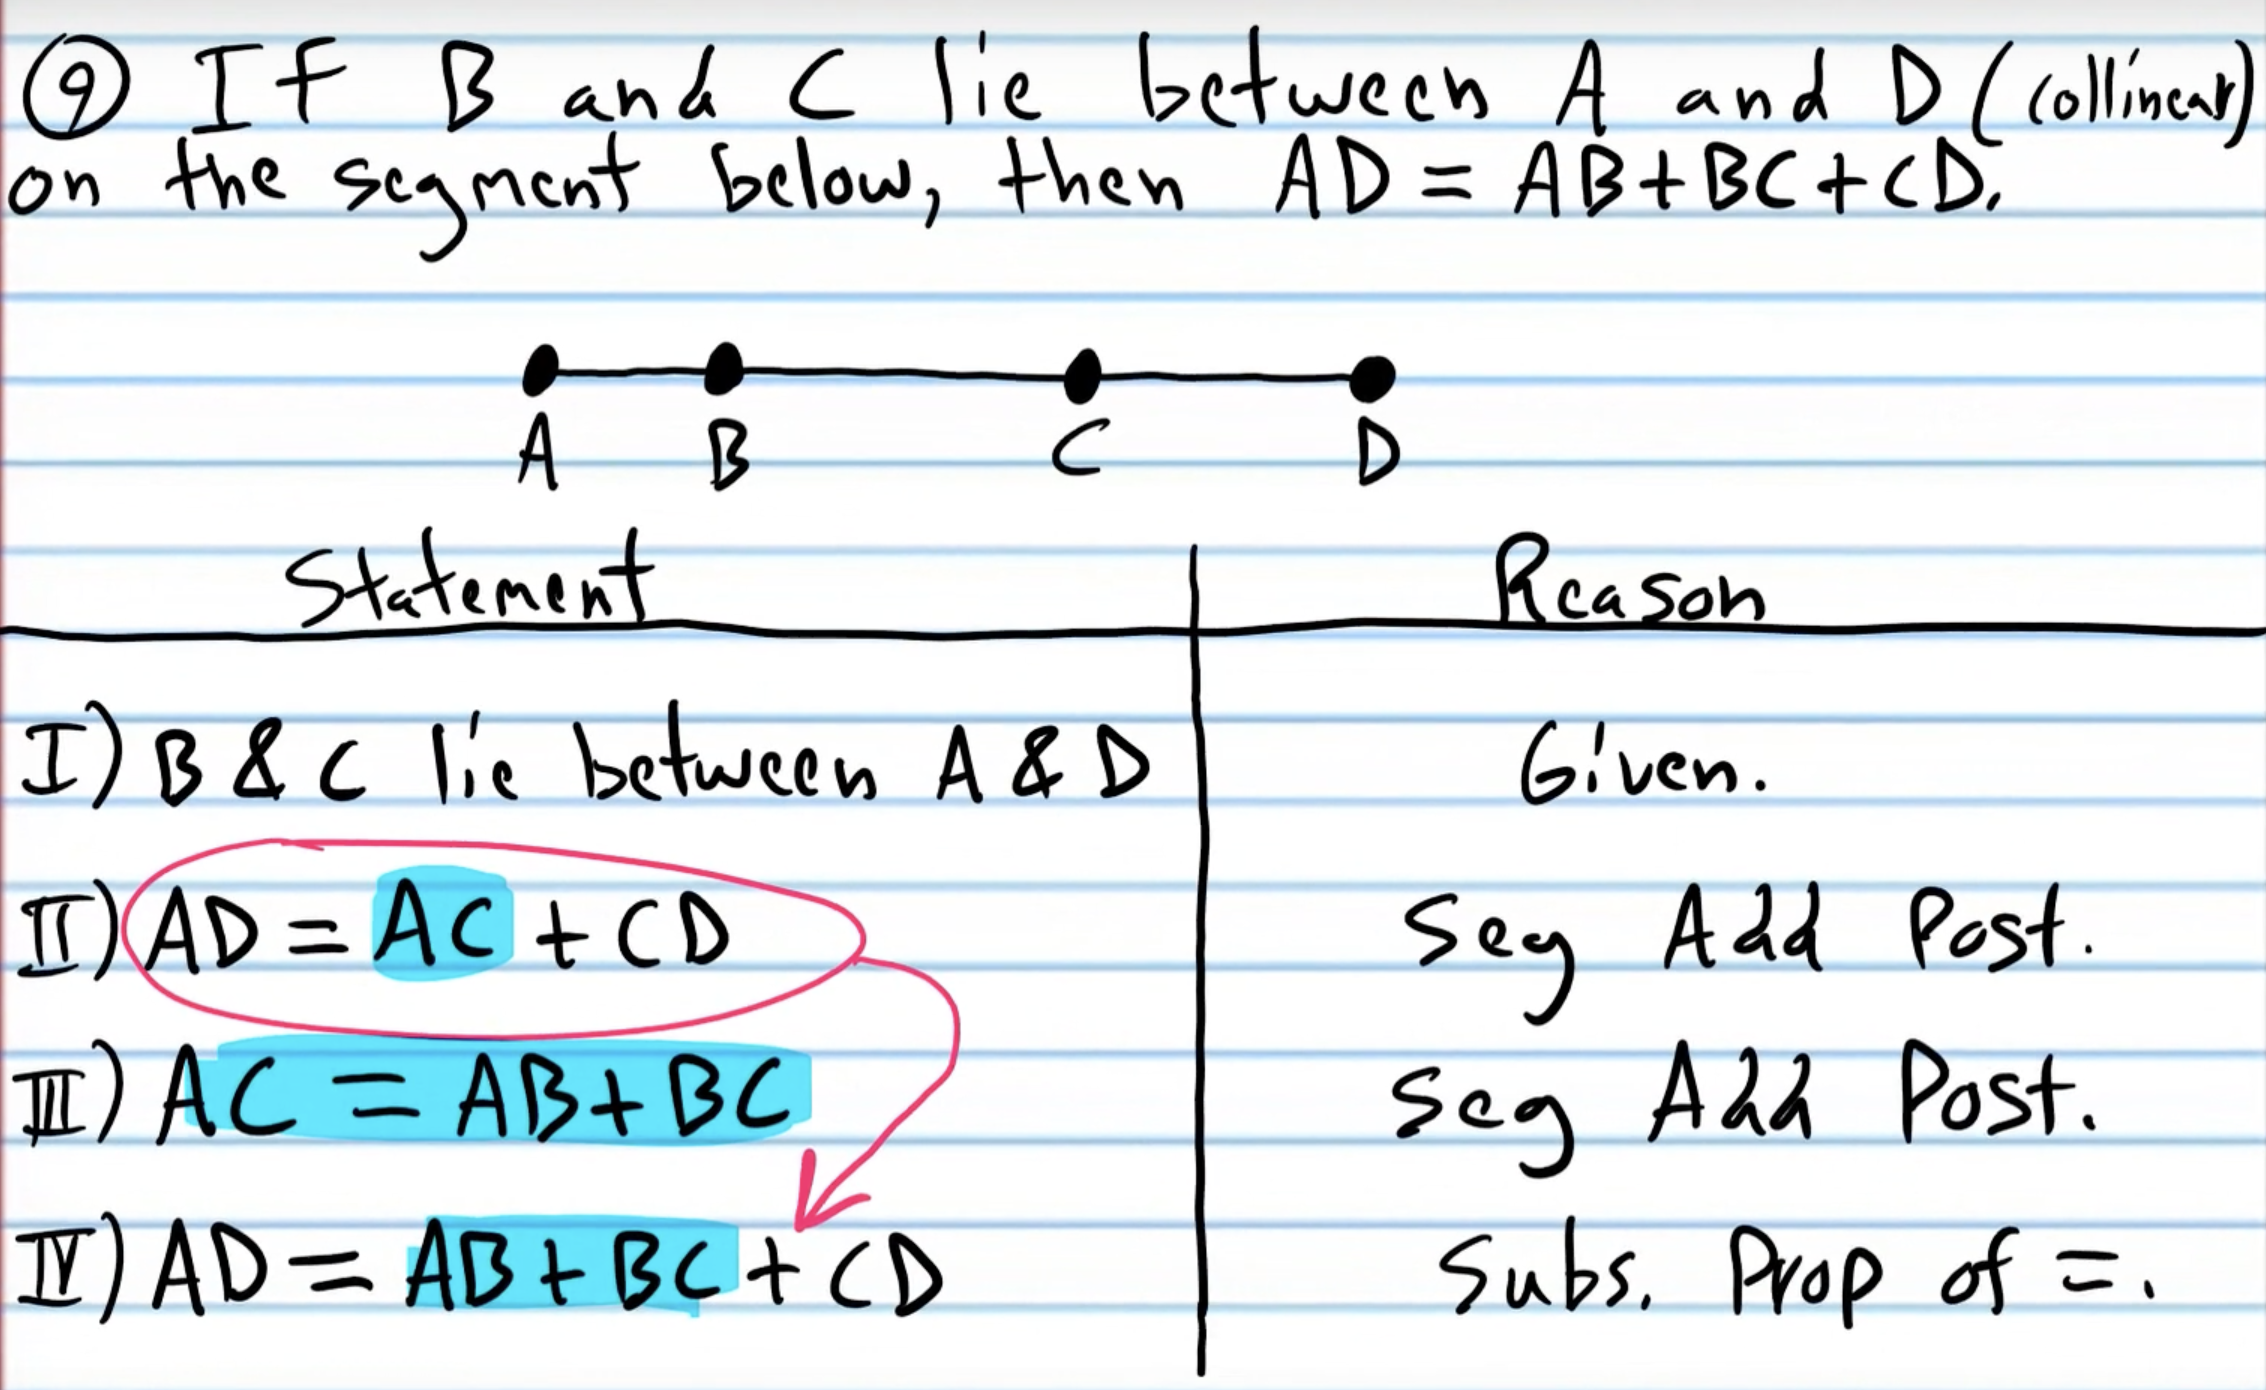 ⑨ If B and C lie between A and D (collinear)
on the segment below, then AD = AB+BC+CD.
A B C D
Statement Reason
I) B & C lie between A & D Given.
II) AD = AC + CD Seg Add Post.
III) AC = AB+BC Seg Add Post.
IV) AD = AB+BC+CD Subs. Prop of =.